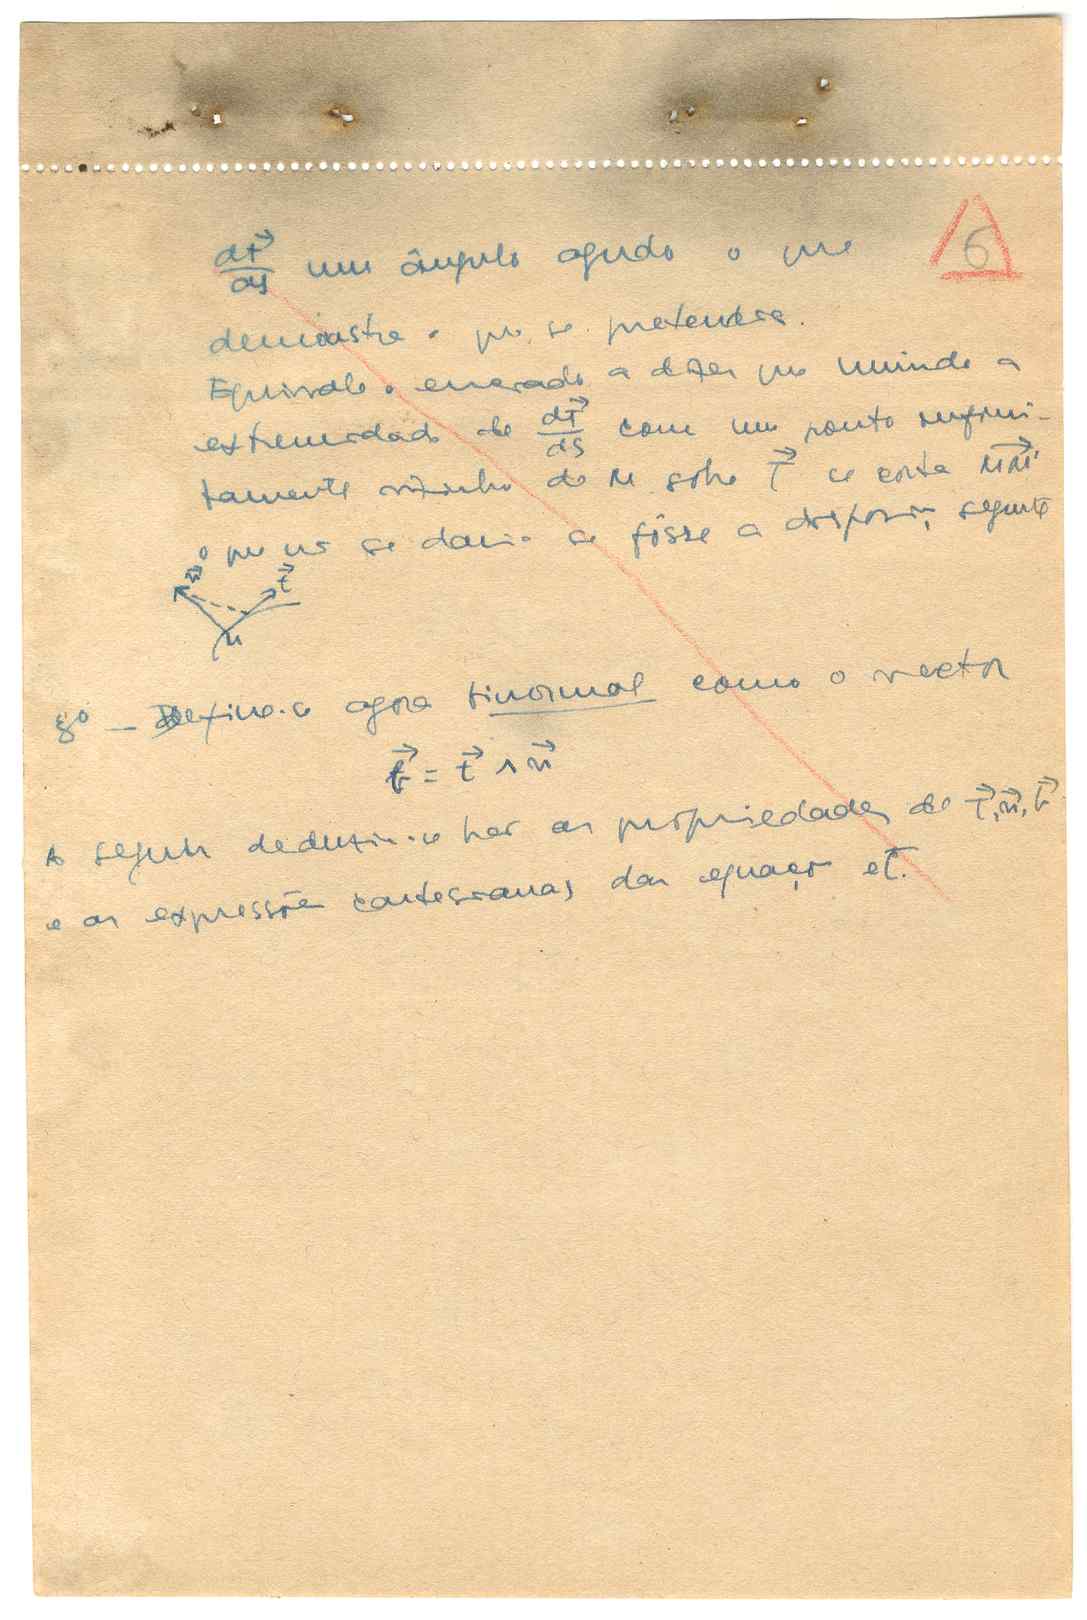 6
dt⃗/ds um ângulo agudo o que
demonstra o que se pretendera.
Equivale o enerado a dizer que unindo a
extremidade de dt⃗/ds com um ponto infini-
tamente vizinho de M sobre t⃗ se corta MM'
o que não se daria se fôsse a disposição seguinte
n⃗ t⃗
M
8º - Define-se agora binormal como o vector
b⃗ = t⃗ ∧ n⃗
A seguir deduzir-se as propriedades de t⃗, n⃗, b⃗
e as expressões cartesianas das equações etc.